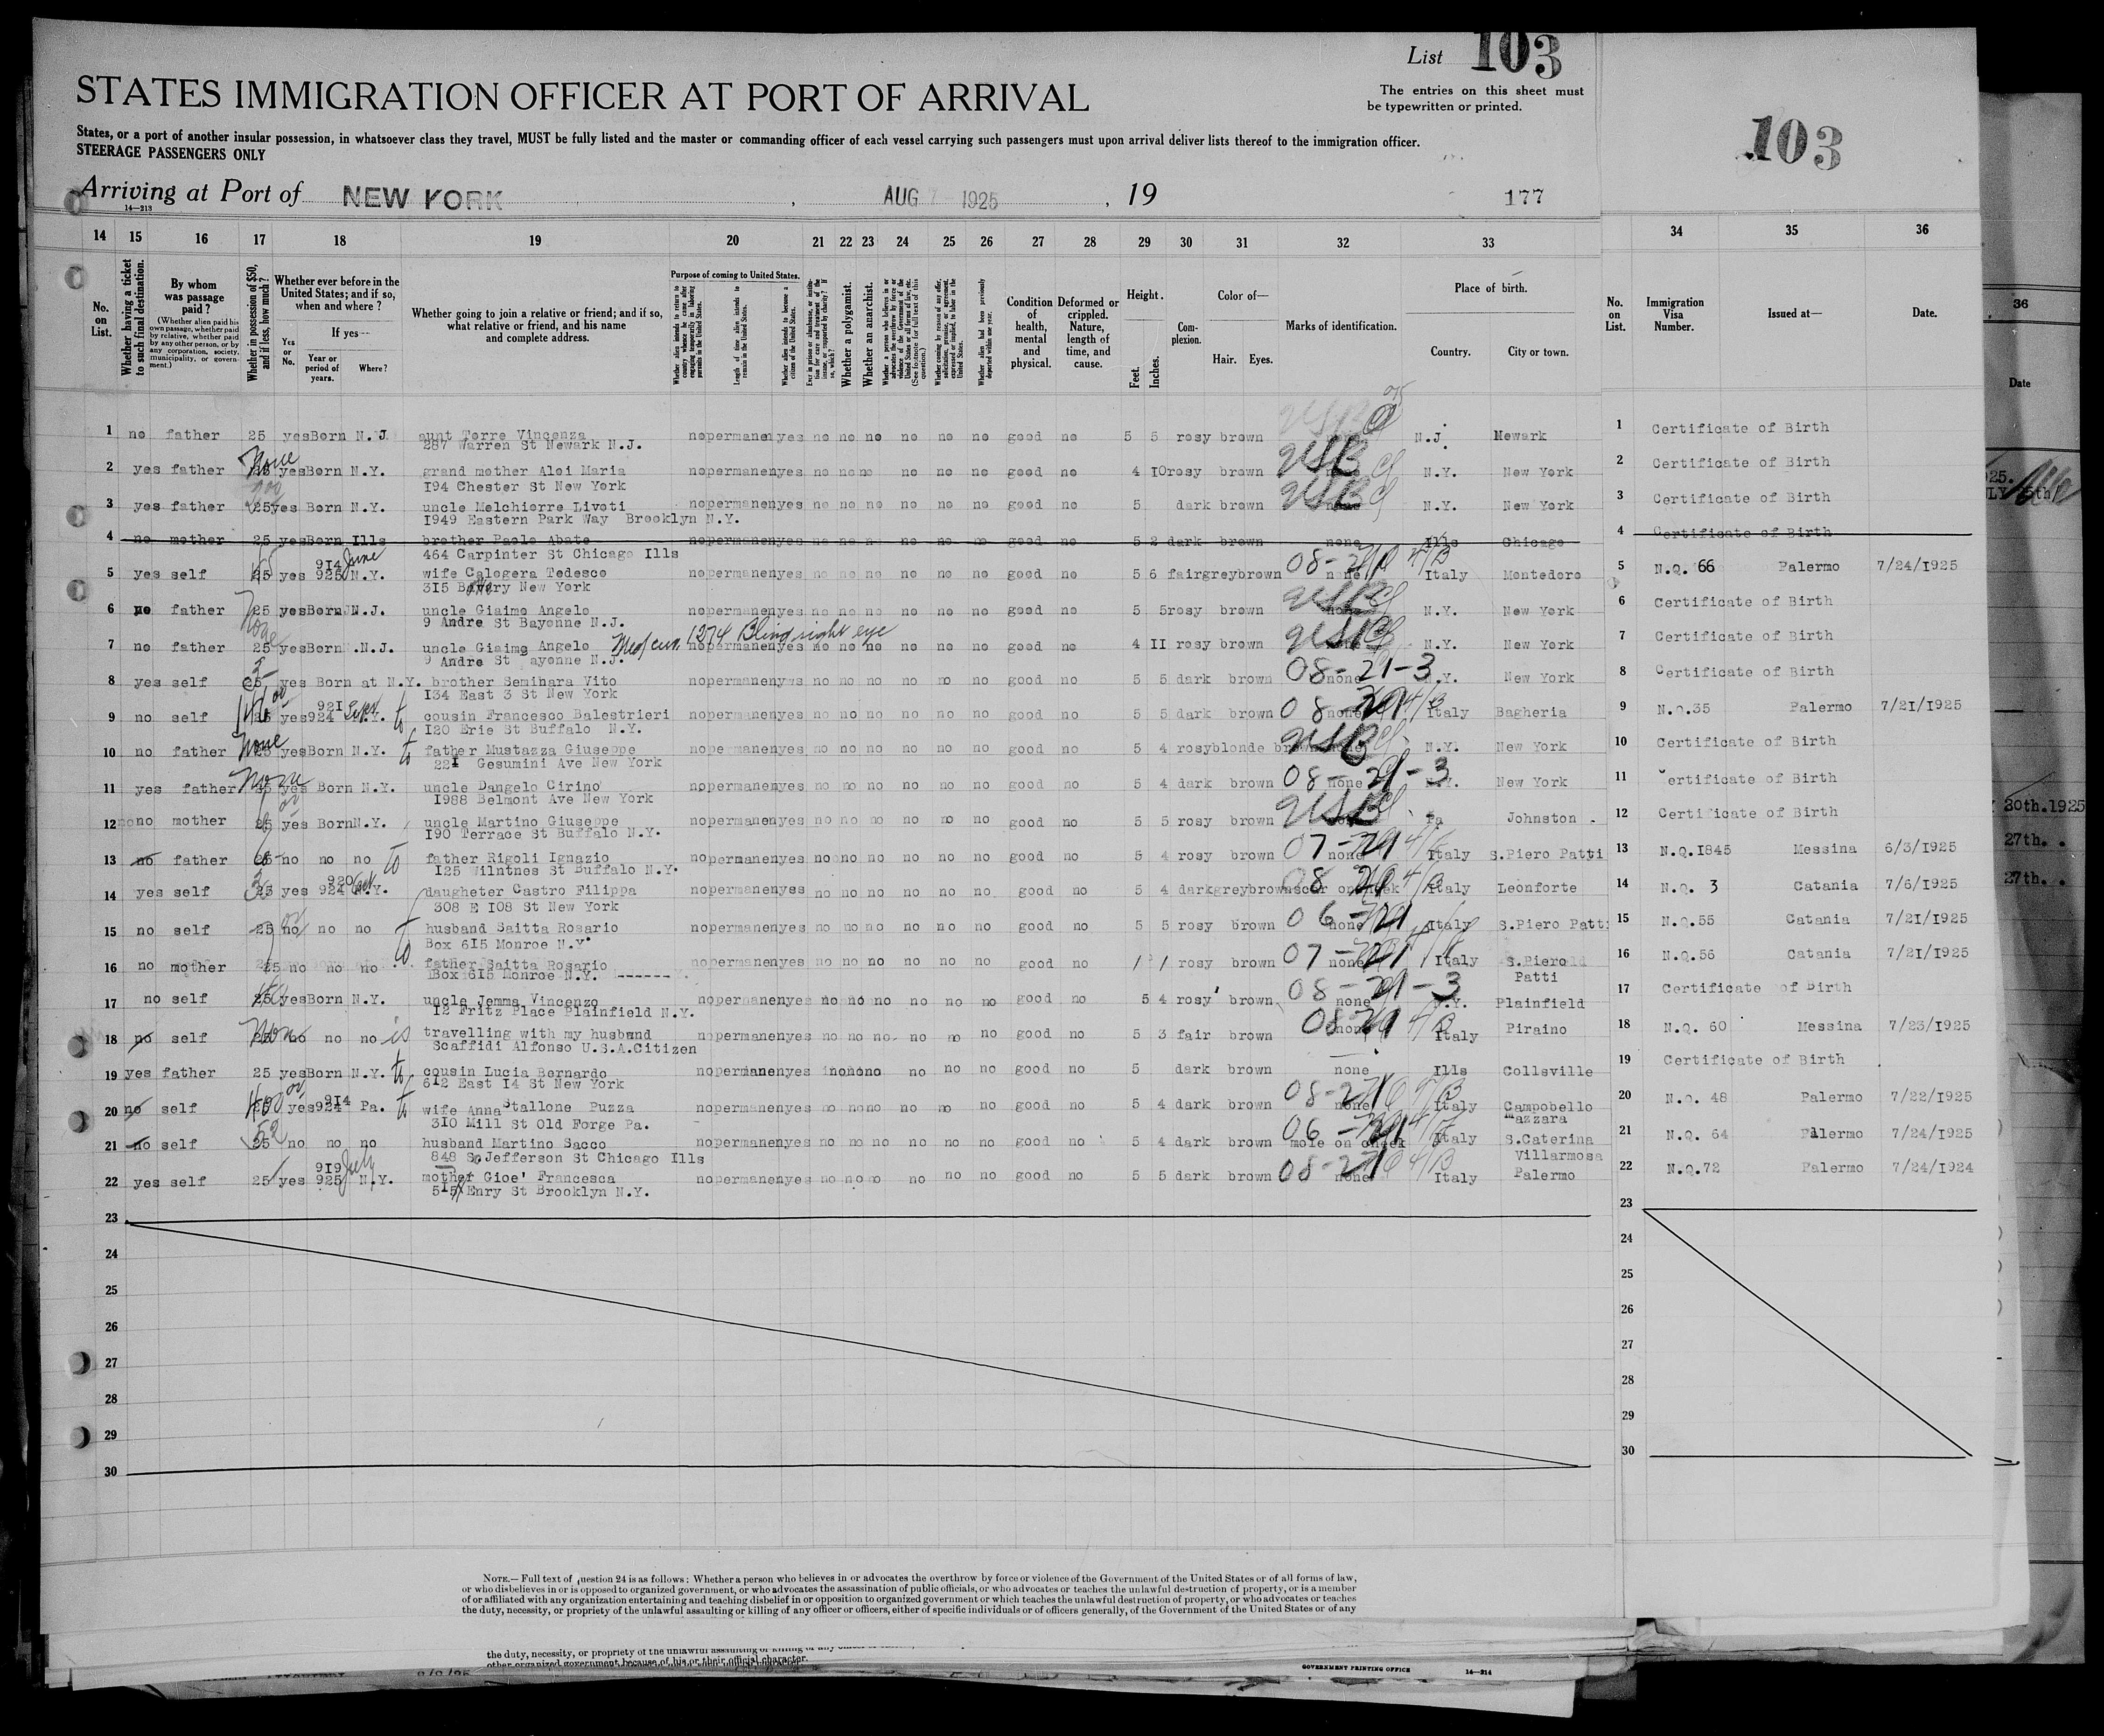 List 103
STATES IMMIGRATION OFFICER AT PORT OF ARRIVAL
The entries on this sheet must
be typewritten or printed.
103
States, or a port of another insular possession, in whatsoever class they travel, MUST be fully listed and the master or commanding officer of each vessel carrying such passengers must upon arrival deliver lists thereof to the immigration officer.
STEERAGE PASSENGERS ONLY
Arriving at Port of NEW YORK , AUG 7 1925 , 19 177
14—213
14 15 16 17 18 19 20 21 22 23 24 25 26 27 28 29 30 31 32 33 34 35 36
No. on List.
Whether having a ticket to such final destination.
By whom was passage paid?
(Whether alien paid his own passage, whether paid by relative, whether paid by any other person, or by any corporation, society, municipality, or government.)
Whether in possession of $50, and if less, how much?
Whether ever before in the United States; and if so, when and where?
Yes or No.
If yes—
Year or period of years.
Where?
Whether going to join a relative or friend; and if so, what relative or friend, and his name and complete address.
Purpose of coming to United States.
Whether alien intends to return to country whence he came after engaging temporarily in laboring pursuits in the United States.
Length of time alien intends to remain in the United States.
Whether alien intends to become a citizen of the United States.
Whether a polygamist.
Whether an anarchist.
Condition of health, mental and physical.
Deformed or crippled. Nature, length of time, and cause.
Height.
Feet. Inches.
Complexion.
Color of—
Hair. Eyes.
Marks of identification.
Place of birth.
Country. City or town.
No. on List.
Immigration Visa Number.
Issued at—
Date.
36
Date
1 no father 25 yes Born N.J aunt Torre Vincenza no permanen yes no no no no no no good no 5 5 rosy brown N.J. Newark 1 Certificate of Birth
287 Warren St Newark N.J.
2 yes father None yes Born N.Y. grand mother Aloi Maria no permanen yes no no no no no no good no 4 I0 rosy brown USB N.Y. New York 2 Certificate of Birth
I94 Chester St New York
3 yes father 25 yes Born N.Y. uncle Melchierre Livoti no permanen yes no no no no no no good no 5 dark brown USB N.Y. New York 3 Certificate of Birth
I949 Eastern Park Way Brooklyn N.Y.
4 no mother 25 yes Born Ills brother Paolo Abate no permanen yes no no no no no no good no 5 2 dark brown none Ills Chicago 4 Certificate of Birth
464 Carpinter St Chicago Ills
914 June
5 yes self 25 yes 925 N.Y. wife Calogera Tedesco no permanen yes no no no no no no good no 5 6 fair grey brown none Italy Montedoro 5 N.Q. 66 Palermo 7/24/I925
3I5 Bowery New York
6 no father 25 yes Born N.J. uncle Giaimo Angelo no permanen yes no no no no no no good no 5 5 rosy brown USB N.Y. New York 6 Certificate of Birth
9 Andre St Bayonne N.J.
7 no father None 25 yes Born .N.J. uncle Giaimo Angelo Med cert 1274 Blind right eye no permanen yes no no no no no no good no 4 II rosy brown USB N.Y. New York 7 Certificate of Birth
9 Andre St ayonne N.J.
8 yes self yes Born at N.Y. brother Semihara Vito no permanen yes no no no no no no good no 5 5 dark brown none 08-29-3 N.Y. New York 8 Certificate of Birth
I34 East 3 St New York
92I
9 no self yes 924 N.Y. to cousin Francesco Balestrieri no permanen yes no no no no no no good no 5 5 dark brown none Italy Bagheria 9 N.Q.35 Palermo 7/2I/I925
I20 Erie St Buffalo N.Y.
10 no father None yes Born N.Y. to father Mustazza Giuseppe no permanen yes no no no no no no good no 5 4 rosy blonde brown USB N.Y. New York 10 Certificate of Birth
22I Gesumini Ave New York
11 yes father None yes Born N.Y. uncle Dangelo Cirino no permanen yes no no no no no no good no 5 4 dark brown none 08-29-3 N.Y. New York 11 ertificate of Birth
I988 Belmont Ave New York
12 no mother 25 yes Born N.Y. uncle Martino Giuseppe no permanen yes no no no no no no good no 5 5 rosy brown USB Pa Johnston . 12 Certificate of Birth
I90 Terrace St Buffalo N.Y.
13 no father 25 no no no to father Rigoli Ignazio no permanen yes no no no no no no good no 5 4 rosy brown none Italy S.Piero Patti 13 N.Q.I845 Messina 6/3/I925
I25 Wilntnes St Buffalo N.Y.
920
14 yes self 25 yes 924 N.Y. daugheter Castro Filippa no permanen yes no no no no no no good no 5 4 dark grey brown scar on cheek Italy Leonforte 14 N.Q. 3 Catania 7/6/I925
308 E I08 St New York
15 no self 25 no no no to husband Saitta Rosario no permanen yes no no no no no no good no 5 5 rosy brown none Italy S.Piero Patti 15 N.Q.55 Catania 7/2I/I925
Box 6I5 Monroe N.Y.
16 no mother 25 no no no to father Saitta Rosario no permanen yes no no no no no no good no / / rosy brown none Italy S.Piero Patti 16 N.Q.56 Catania 7/2I/I925
Box 6I5 Monroe N.Y. -------
17 no self 25 yes Born N.Y. uncle Jemma Vincenzo no permanen yes no no no no no no good no 5 4 rosy brown none 08-29-3 N.Y. Plainfield 17 Certificate of Birth
I2 Fritz Place Plainfield N.Y.
18 no self None no no no is travelling with my husband no permanen yes no no no no no no good no 5 3 fair brown none Italy Piraino 18 N.Q. 60 Messina 7/23/I925
Scaffidi Alfonso U.S.A.Citizen
19 yes father 25 yes Born N.Y. to cousin Lucia Bernardo no permanen yes no no no no no no good no 5 dark brown none Ills Collsville 19 Certificate of Birth
6I2 East I4 St New York
914
20 no self 400 yes 924 Pa. to wife Anna Stallone Puzza no permanen yes no no no no no no good no 5 4 dark brown none Italy Campobello Mazzara 20 N.Q. 48 Palermo 7/22/I925
3I0 Mill St Old Forge Pa.
21 no self 25 no no no husband Martino Sacco no permanen yes no no no no no no good no 5 4 dark brown mole on cheek Italy S.Caterina Villarmosa 21 N.Q. 64 Palermo 7/24/I925
848 So Jefferson St Chicago Ills
919 July
22 yes self 25 yes 925 N.Y. mother Gioe' Francesca no permanen yes no no no no no no good no 5 5 dark brown none Italy Palermo 22 N.Q.72 Palermo 7/24/I924
5I5 Enry St Brooklyn N.Y.
23 23
24 24
25 25
26 26
27 27
28 28
29 29
30 30
30th.1925
27th. .
27th. .
NOTE.—Full text of uestion 24 is as follows: Whether a person who believes in or advocates the overthrow by force or violence of the Government of the United States or of all forms of law,
or who disbelieves in or is opposed to organized government, or who advocates the assassination of public officials, or who advocates or teaches the unlawful destruction of property, or is a member
of or affiliated with any organization entertaining and teaching disbelief in or opposition to organized government or which teaches the unlawful destruction of property, or who advocates or teaches
the duty, necessity, or propriety of the unlawful assaulting or killing of any officer or officers, either of specific individuals or of officers generally, of the Government of the United States or of any
the duty, necessity, or propriety of the unlawful assaulting or killing of any
other organized government because of his or their official character.
GOVERNMENT PRINTING OFFICE 14—214